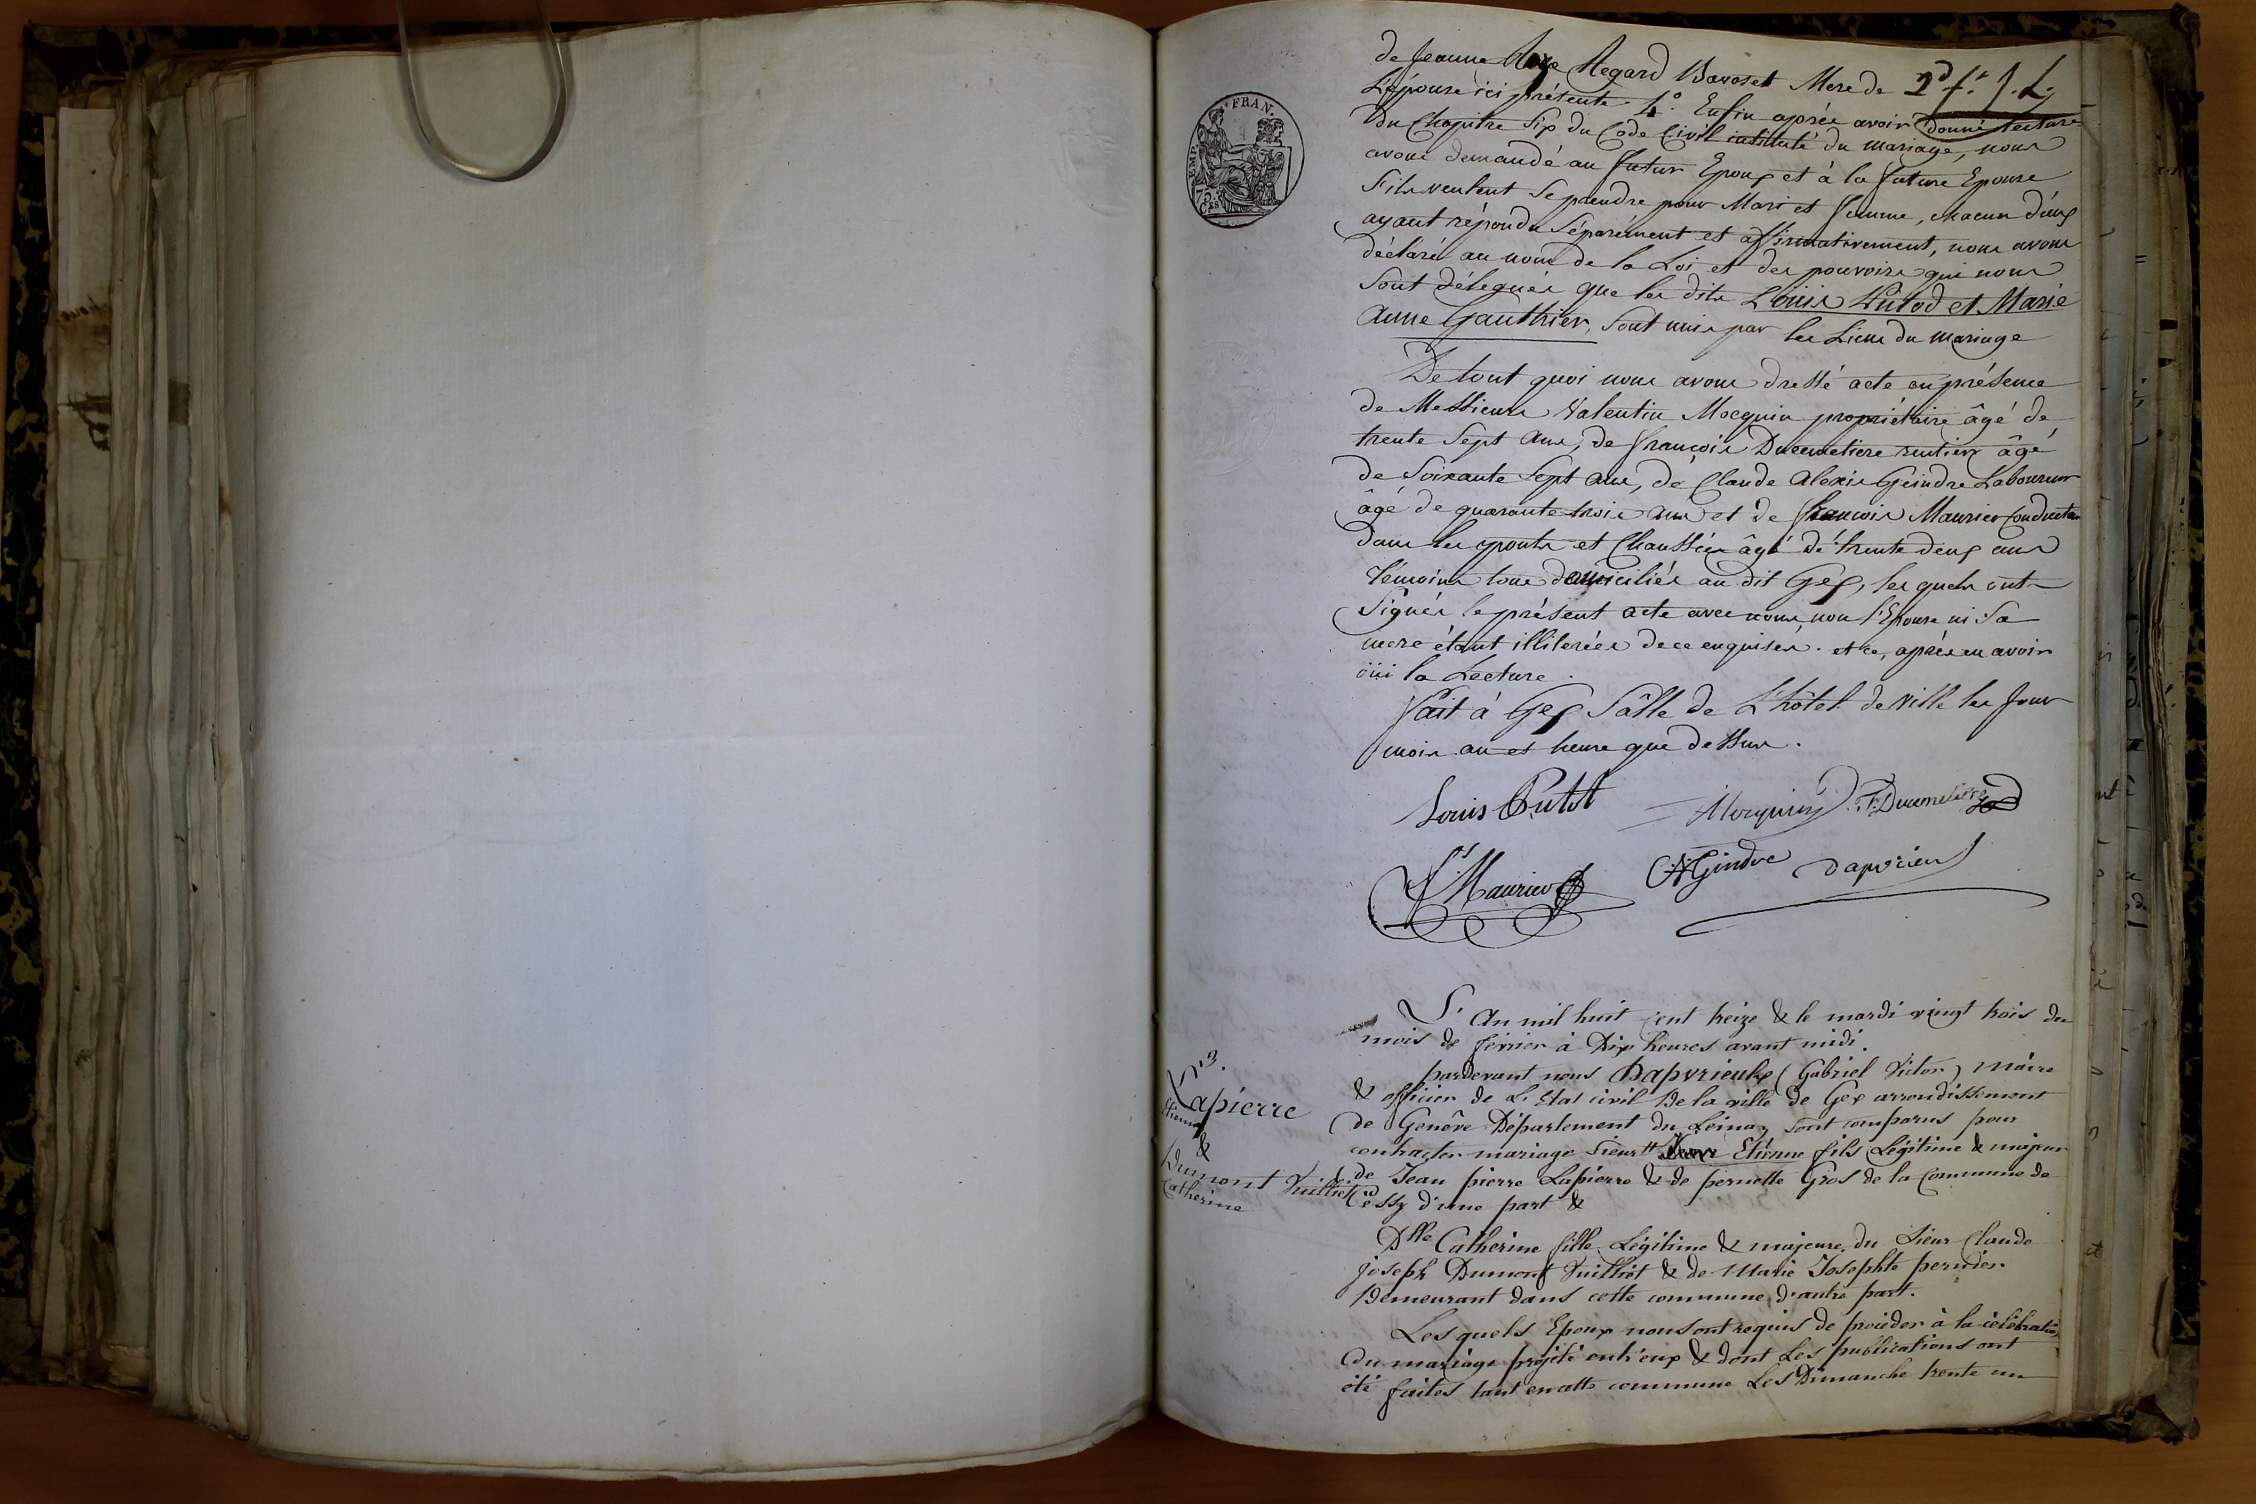 de Jeanne Regard Bavoset Mere de 2d f.t
L'épouse ici présente. 4.° Enfin aprés avoir donné lecture
du Chapitre Six du Code Civil intitulé du mariage, nous
avons demandé au futur Epoux et à la future Epouse
s'ils veulent Se prendre pour Mari et femme, chacun d'eux
ayant répondu Séparément et affirmativement, nous avons
déclaré au nom de la Loi et des pouvoirs qui nous
Sont délégués que les dits Louis Putod et Marie
Anne Gauthier, Sont unis par les Liens du mariage
De tout quoi nous avons dressé acte en présence
de Messieurs Valentin Mocquin propriétaire âgé de
trente Sept ans, de françois Ducemetiere rentier âgé
de Soixante Sept ans, de Claude Alexis Geindre Laboureur
âgé de quarante trois ans et de françois Maurier Conducteur
dans les ponts et Chaussées âgé de trente deux ans
témoins tous domiciliés au dit Gex, les quels ont
Signés le présent acte avec nous, non l'Epouse ni Sa
mere étant illiterées de ce enquises. et ce, aprés en avoir
oüi la Lecture.
fait à Gex Sâlle de L'hôtel de Ville les Jour
mois an et heure que dessus.
Louis Putod Mocquin f. Ducemetiere
fs Maurier CA Gindre Dapvrieu
EMP. FRAN.
75 Ces
L'An mil huit cent treize & le mardi vingt trois du
mois de fevrier à Dix heures avant midi.
pardevant nous Dapvrieulx (Gabriel Victor) Maire
& officier de L'Etat civil De la ville de Gex arrondissement
de Genêve Département du Léman sont comparus pour
contracter mariage Sieur Etienne fils Légitime & majeur
de Jean pierre Lapierre & de pernette Gros de la Commune de
Cessy d'une part &
N° 3.
Lapierre
Etienne
&
Dumont Vuilliet
Catherine
Dlle Catherine fille Légitime & majeure du Sieur Claude
joseph Dumont Vuilliet & de Marie Josephte pernier
Demeurant dans cette commune d'autre part.
Les quels Epoux nous ont requis de procéder à la célébration
du mariage projetté entr'eux & dont Les publications ont
été faites tant en cette commune Les Dimanche trente un